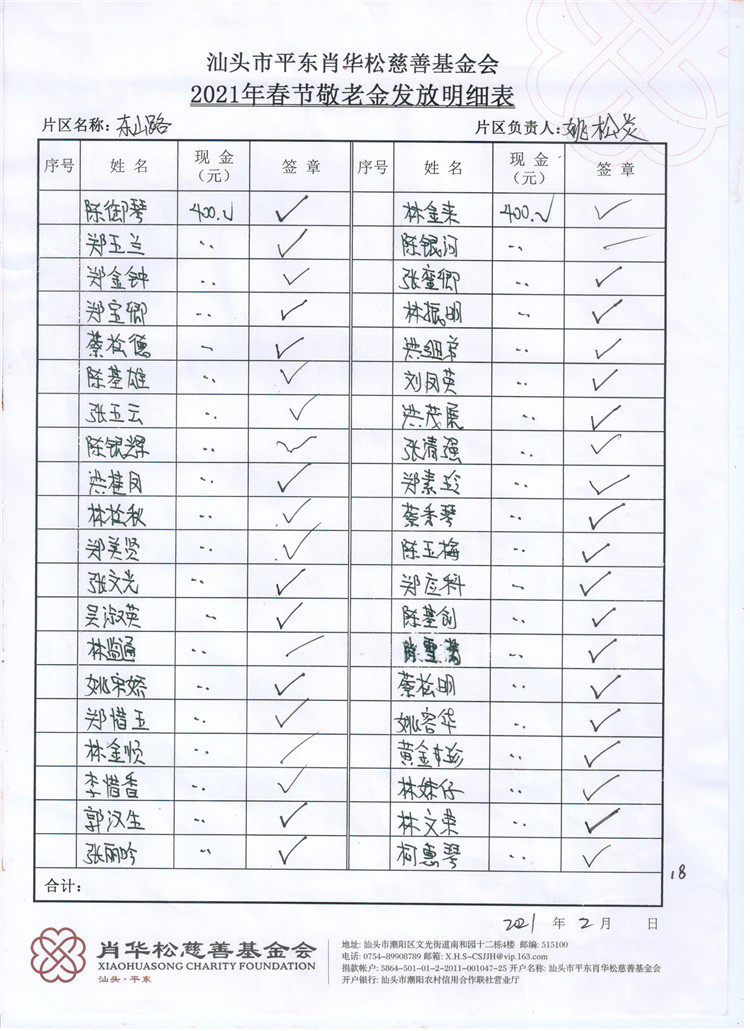 汕头市平东肖华松慈善基金会
2021年春节敬老金发放明细表
片区名称：东山路 片区负责人：姚松炎
序号 姓名 现金（元） 签章 序号 姓名 现金（元） 签章
陈御琴 400.√ ✓ 林金来 400.√ ✓
郑玉兰 ✓ 陈银河
郑金钟 ✓ 张銮卿 ✓
郑宝卿 ✓ 林振明 ✓
蔡松德 ✓ 洪细弟 ✓
陈基雄 ✓ 刘凤英 ✓
张玉云 ✓ 洪茂虎 ✓
陈银辉 ✓ 张清强 ✓
洪桂凤 ✓ 郑素玲 ✓
林松秋 ✓ 蔡香琴 ✓
郑美贤 ✓ 陈玉梅 ✓
张文光 ✓ 郑应科 ✓
吴淑英 ✓ 陈基创 ✓
✓
姚宋娇 ✓ 蔡松明 ✓
郑惜玉 ✓ 姚容华 ✓
林金顺 黄金 ✓
李惜香 ✓ 林妹仔 ✓
郭汉生 ✓ 林文荣 ✓
张丽吟 ✓ 柯惠琴 ✓
18
合计：
2021 年 2 月 日
肖华松慈善基金会
XIAOHUASONG CHARITY FOUNDATION
汕头·平东
地址: 汕头市潮阳区文光街道南和园十二栋4楼 邮编: 515100
电话: 0754-89908789 邮箱: X.H.S-CSJJH@vip.163.com
捐款帐户: 5864-501-01-2-2011-001047-25 开户名称: 汕头市平东肖华松慈善基金会
开户银行: 汕头市潮阳农村信用合作联社营业厅